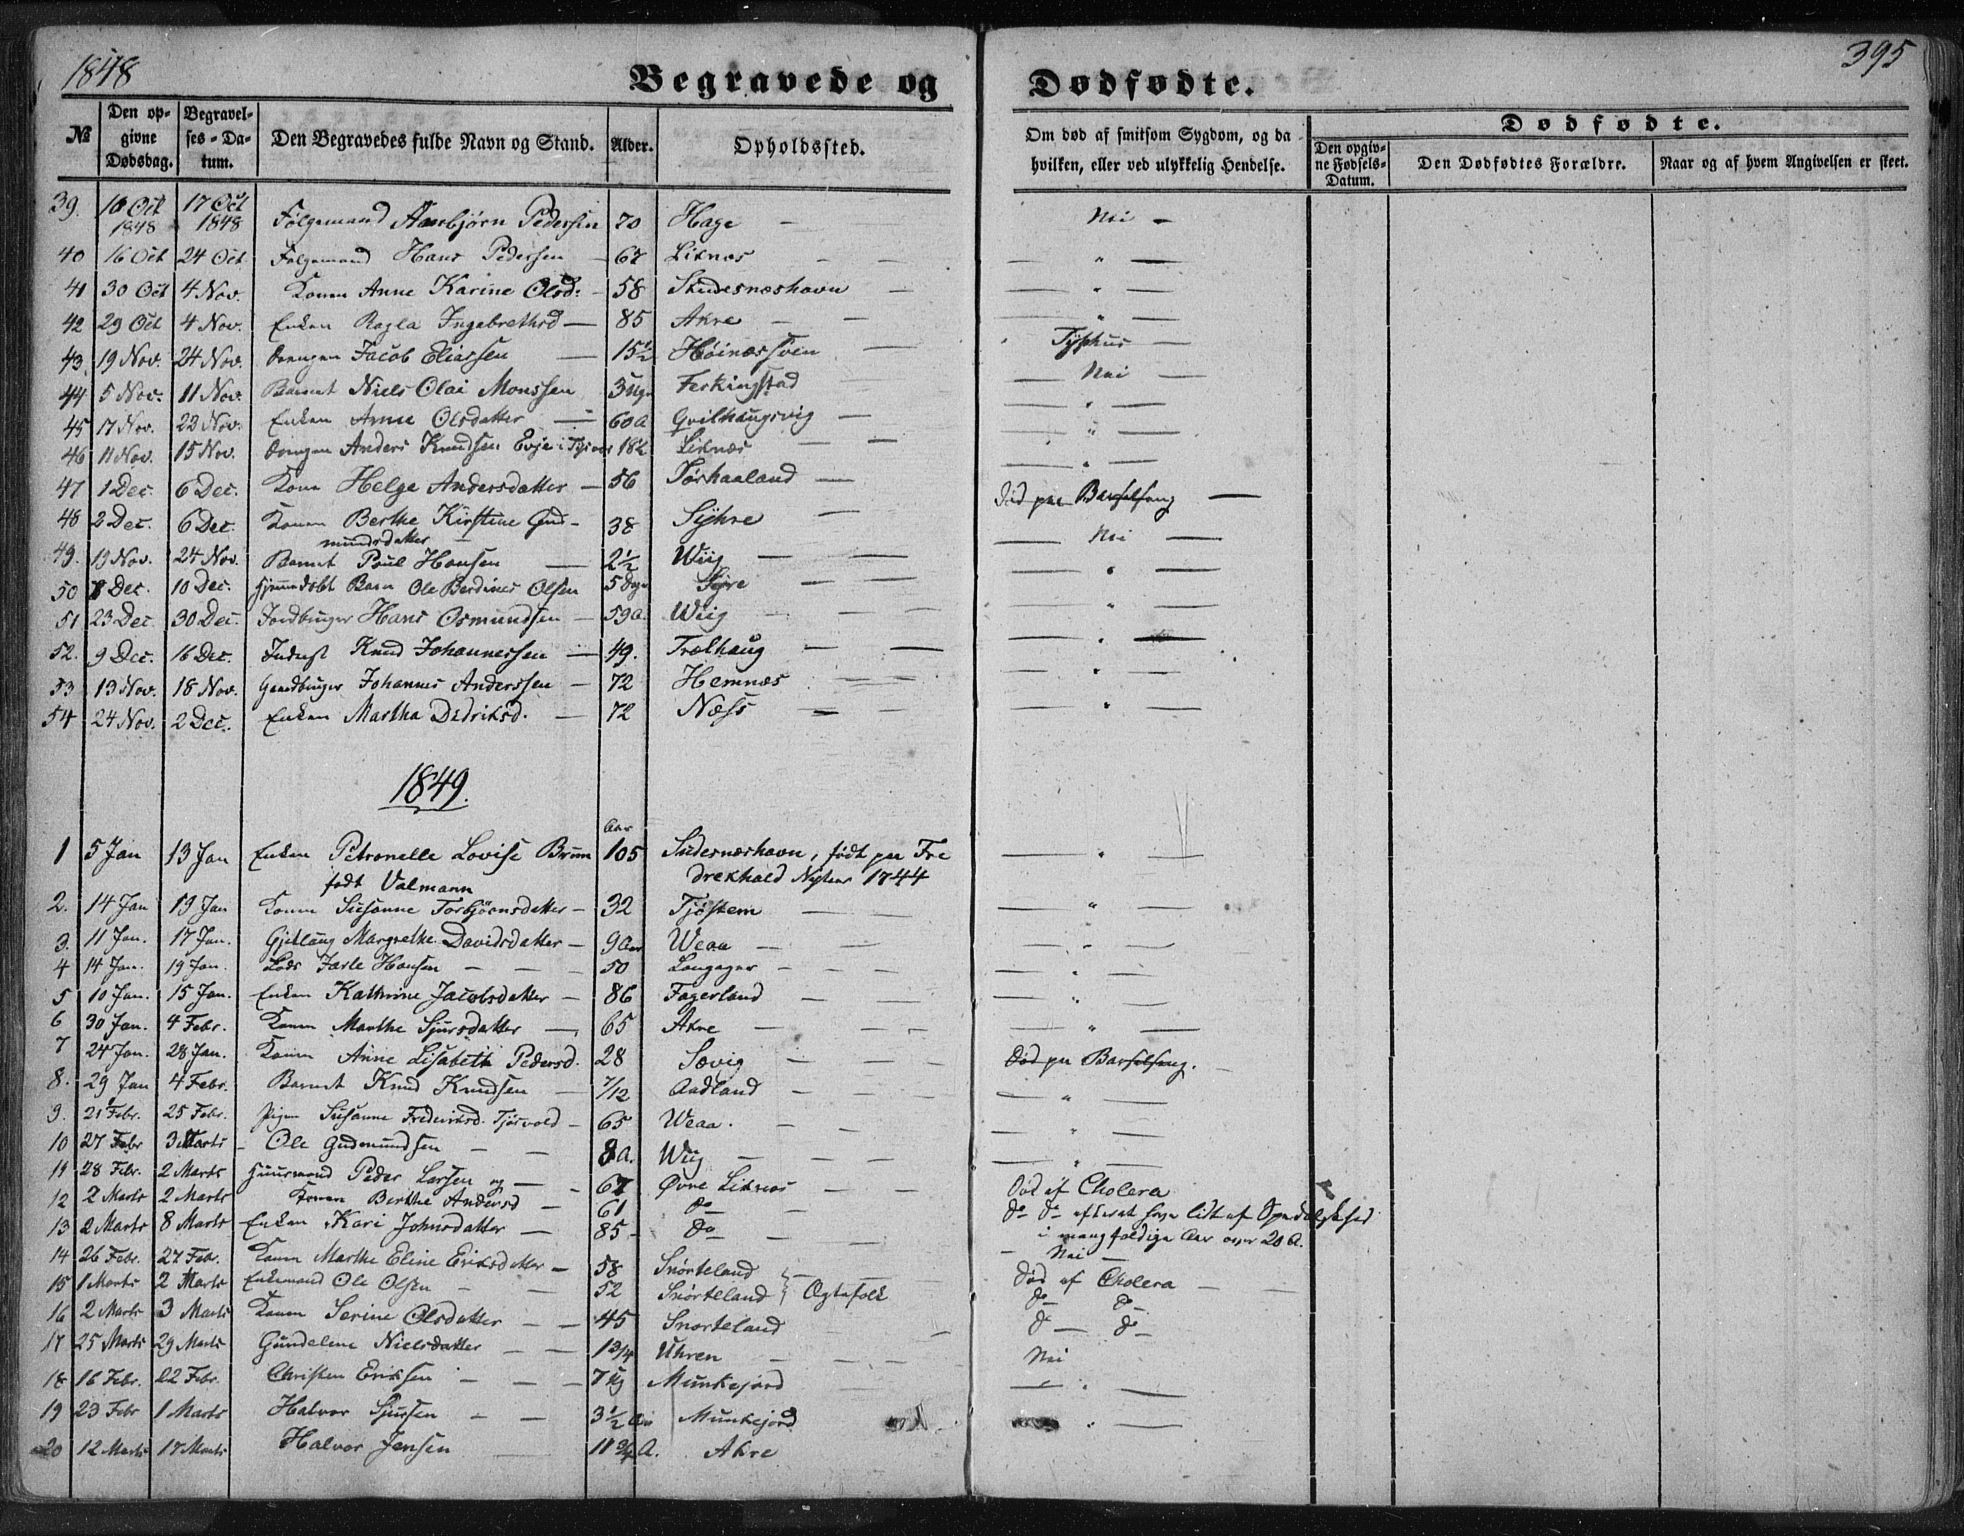 1848
395
Begravede og Dødfødte.
№ Den opgivne Dødsdag. Begravelses-Datum. Den Begravedes fulde Navn og Stand. Alder. Opholdssted. Om død af smitsom Sygdom, og da hvilken, eller ved ulykkelig Hendelse. Dødfødte.
Den opgivne Fødsels-Datum. Den Dødfødtes Forældre. Naar og af hvem Angivelsen er skeet.
39. 10 Oct 1848 17 Oct 1848 Følgemand Asbjørn Pedersen 70 Hage — Nei —
40 16 Oct 24 Oct Følgemand Hans Pedersen — 67 Liknes — — " —
41 30 Oct 4 Nov. Konen Anne Karine Olsd: — 58 Skudesnæshavn — — " —
42 29 Oct 4 Nov. Enken Ragla Ingebrethsd — 85 Akre — — " —
43 19 Nov. 24 Nov. Drengen Jacob Eliassen — 15½ Høinessveen — Typhus —
44 5 Nov. 11 Nov. Barnet Niels Olai Monssen 3 Ugr Ferkingstad — Nei —
45 17 Nov. 22 Nov. Enken Anne Olsdatter — 60 A Qvilhaugsvig — — " —
46 11 Nov. 15 Nov. Drengen Anders Knudsen Evje i Tysvær 18½ Liknes — — " —
47 1 Dec. 6 Dec. Kone Helga Andersdatter — 56 Tørhaaland — — " —
48 2 Dec. 6 Dec. Konen Berthe Kirstine Gud- 38 Syhre — død paa Barselseng —
mundsdatter —
49. 19 Nov. 24 Nov. Barnet Poul Hansen — 2½ Wiig — — Nei —
50 8 Dec. 10 Dec. Hjemmedøbt Barn Ole Berdines Olsen 5 Dage Syre — — " —
51 23 Dec. 30 Dec. Jordbruger Hans Osmundsen — 59 A. Wiig — — " —
52. 9 Dec. 16 Dec. Inderst Knud Johannessen — 49. Trælhaug — — " —
53 13 Nov. 18 Nov. Gaardbruger Johannes Anderssen — 72 Hemnæs — — " —
54 24 Nov. 2 Dec. Enken Martha Didriksd. — 72 Næss — — " —
1849.
Aar
1 5 Jan 13 Jan Enken Petronelle Lovise Bruun 105 Sudesnæshavn, født paa Fre — " —
født Valmann drekhald Nytaar 1744
2. 14 Jan 19 Jan Konen Susanne Torbjørnsdatter — 32 Tjøstem — — " —
3. 11 Jan. 17 Jan. Margrethe Davidsdatter — 9 Aar Weaa — — " —
4 14 Jan. 19 Jan. Lods Jarle Hansen — 50 Langager — — " —
5 10 Jan. 15 Jan. Enken Kathrine Jacobsdatter — 86 Fagerland — — " —
6 30 Jan. 4 Febr. Konen Marthe Sjursdatter — 65 Akre — — " —
7 24 Jan. 28 Jan. Konen Anne Lisabeth Pedersd. 28 Sævig — Død paa Barselseng. —
8. 29 Jan 4 Febr. Barnet Knud Knudsen — 7/12 Aadland — — " —
9. 21 Febr. 25 Febr. Pigen Susanne Frederiksd. Tjøsvold — 65 Weaa. — — " —
10 27 Febr 3 Marts — Ole Gudmundsen — 8 A. Wiig — — " —
11 28 Febr. 2 Marts Huusmand Peder Larsen og — 67 Øvre Liknes — Død af Cholera
12 2 Marts 2 Marts Konen Berthe Andersd — 61 do — do do efterat have lidt af Spedalskhed
13 2 Marts 8 Marts Enken Kari Johnsdatter — 85 — do — i mangfoldige Aar over 20 A.
14 26 Febr. 27 Febr. Konen Marthe Eline Eriksdatter — 58 Snørteland — Nei —
15 1 Marts 2 Marts Enkemand Ole Olsen — 52 Snørteland } Ægtefolk Død af Cholera —
16 2 Marts 3 Marts Konen Serine Olsdatter — 45 Snørteland do — do —
17 25 Marts 29 Marts Gundelene Nielsdatter — 13/4 Uhren — do — do —
Nei
18 16 Febr. 22 Febr. Christen Eriksen — 7 Ug Munkejord — " —
19 23 Febr 1 Marts Halvor Sjursen — 3½ Aar Munkejord — " —
20 12 Marts 17 Marts Halvor Jensen 11¾ A. Akre